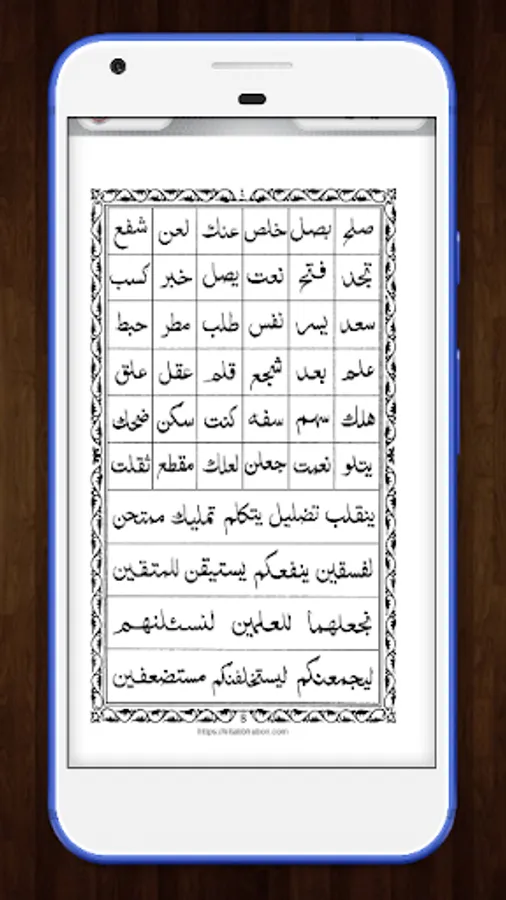 صلح بصل خلص عنك لعن شفع
تجد فتح نعت يصل خبر كسب
سعد يسر نفس طلب مطر حبط
علم بعد شجع قلم عقل علق
هلك سهم سفه كنت سكن ضحك
يتلو نعمت جعلن لعلك مقطع ثقلت
ينقلب تضليل يتكلم تمليك ممتحن
لفسقين ينفعكم يستيقن للمتقين
نجعلهما للعلمين لنسئلنهم
ليجمعنكم ليستخلفنكم مستضعفين